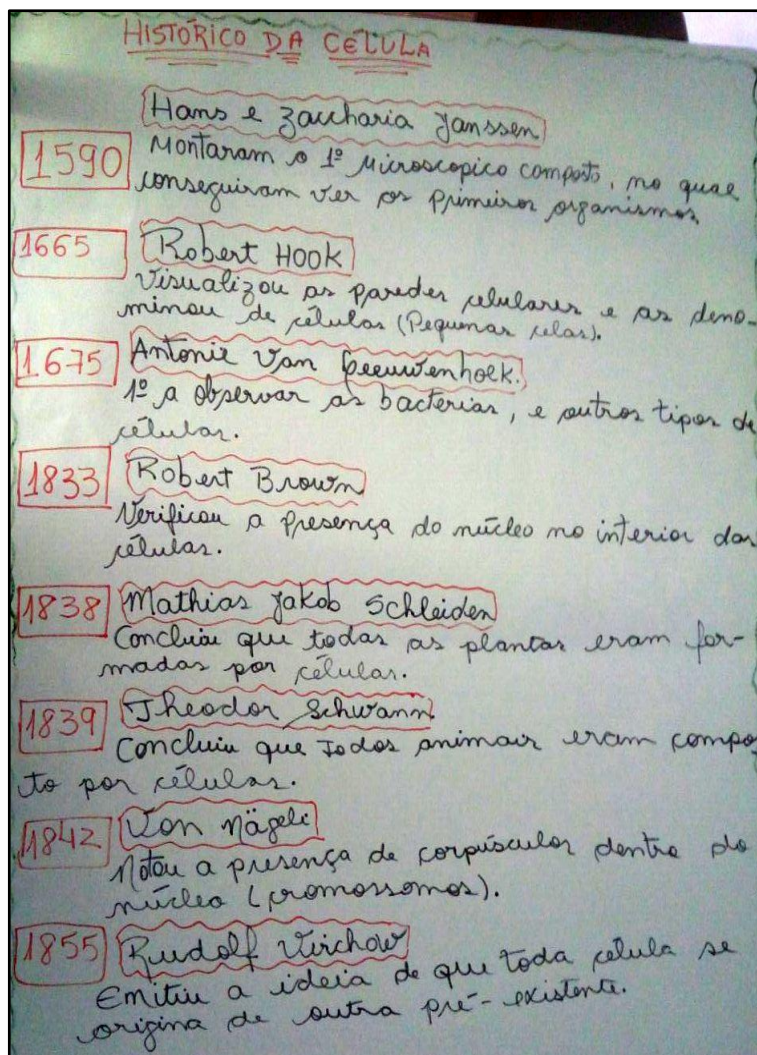 HISTÓRICO DA CÉLULA
Hans e Zaccharia Janssen
1590
Montaram o 1º Microscopico composto, no qual
conseguiram ver os primeiros organismos.
1665
Robert Hook
Visualizou as paredes celulares e as deno-
minou de células (Pequenas celas).
1675
Antonie Van Leeuwenhoek.
1º a observar as bacterias, e outros tipos de
células.
1833
Robert Brown
Verificou a presença do núcleo no interior das
células.
1838
Mathias Jakob Schleiden
Concluiu que todas as plantas eram for-
madas por células.
1839
Theodor Schwann.
Concluiu que todos animais eram compo
to por células.
1842
Von Nägeli
Notou a presença de corpúsculos dentro do
núcleo (cromossomos).
1855
Rudolf Virchow
Emitiu a ideia de que toda célula se
origina de outra pré-existente.